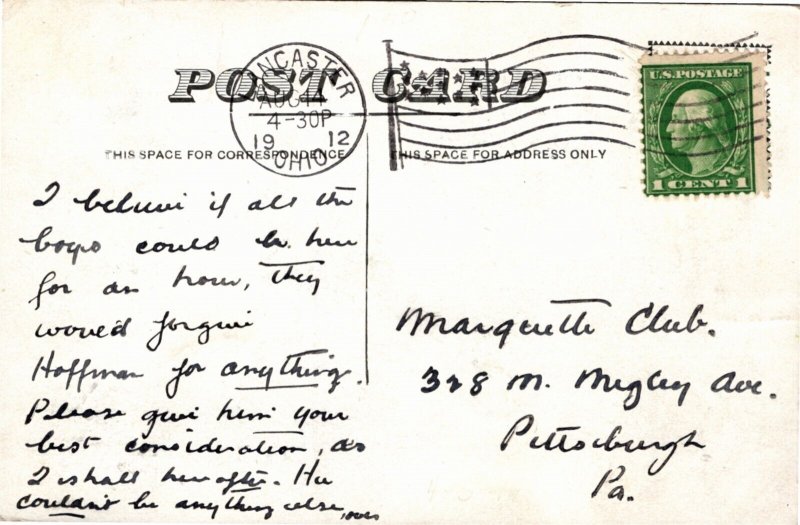 POST CARD
LANCASTER
AUG 14
4-30P
19 12
OHIO
U.S. POSTAGE
1 CENT 1
THIS SPACE FOR CORRESPONDENCE
THIS SPACE FOR ADDRESS ONLY
I believe if all the
boys could be here
for an hour, they
would forgive
Hoffman for anything.
Please give him your
best consideration, as
I shall hereafter. He
couldn't be anything else, over
Marquette Club.
328 N. Negley Ave.
Pittsburgh
Pa.